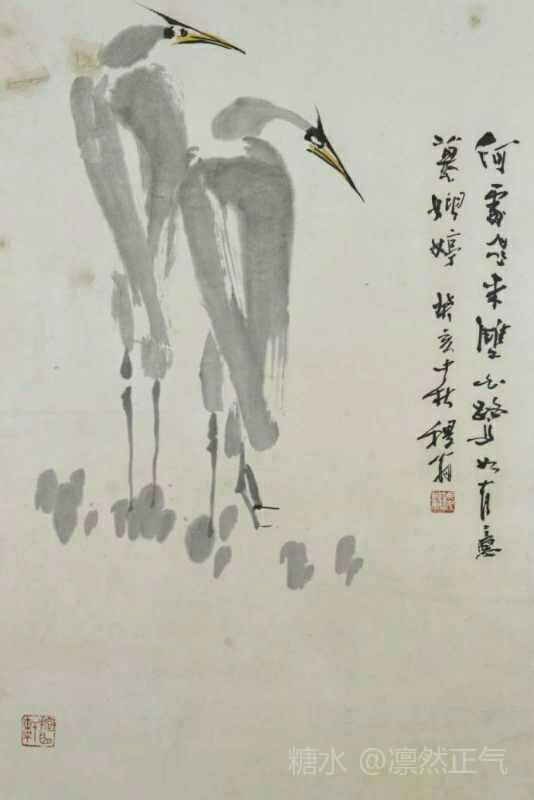 何處飛來雙白鷺如有意
慕娉婷 癸亥中秋 翁
糖水 @凛然正气